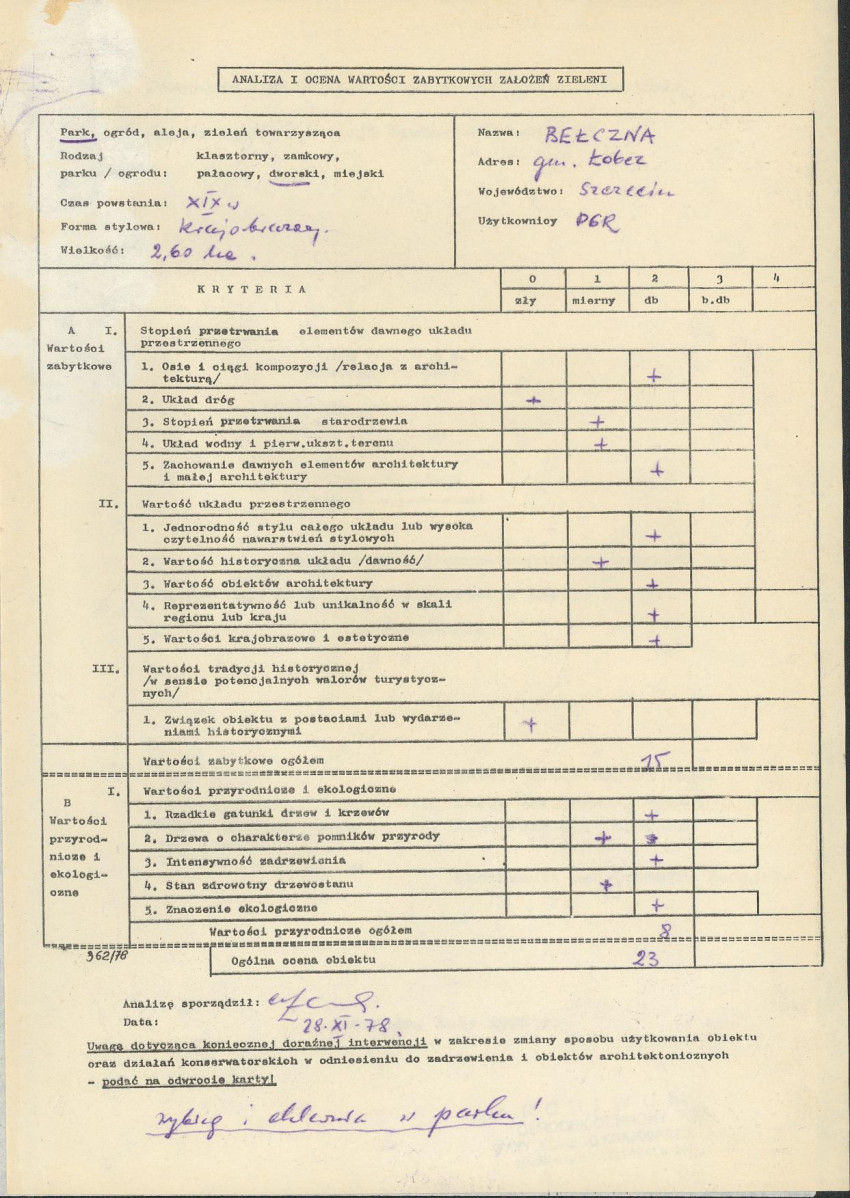 ANALIZA I OCENA WARTOŚCI ZABYTKOWYCH ZAŁOŻEŃ ZIELENI
Park, ogród, aleja, zieleń towarzysząca
Rodzaj klasztorny, zamkowy,
parku / ogrodu: pałacowy, dworski, miejski
Czas powstania: XIX w
Forma stylowa: krajobrazowy.
Wielkość: 2,60 ha.
Nazwa: BEŁCZNA
Adres: gm. Łobez
Województwo: Szczecin
Użytkownicy PGR
KRYTERIA
0 1 2 3 4
zły mierny db b.db
A I. Stopień przetrwania elementów dawnego układu
Wartości przestrzennego
zabytkowe 1. Osie i ciągi kompozycji /relacja z archi-
tekturą/ +
2. Układ dróg +
3. Stopień przetrwania starodrzewia +
4. Układ wodny i pierw.ukszt.terenu +
5. Zachowanie dawnych elementów architektury
i małej architektury +
II. Wartość układu przestrzennego
1. Jednorodność stylu całego układu lub wysoka
czytelność nawarstwień stylowych +
2. Wartość historyczna układu /dawność/ +
3. Wartość obiektów architektury +
4. Reprezentatywność lub unikalność w skali
regionu lub kraju +
5. Wartości krajobrazowe i estetyczne +
III. Wartości tradycji historycznej
/w sensie potencjalnych walorów turystycz-
nych/
1. Związek obiektu z postaciami lub wydarze-
niami historycznymi +
Wartości zabytkowe ogółem 15
I. Wartości przyrodnicze i ekologiczne
B
Wartości
przyrod-
nicze i
ekologi-
czne
1. Rzadkie gatunki drzew i krzewów +
2. Drzewa o charakterze pomników przyrody + +
3. Intensywność zadrzewienia +
4. Stan zdrowotny drzewostanu +
5. Znaczenie ekologiczne +
Wartości przyrodnicze ogółem 8
362/78
Ogólna ocena obiektu 23
Analizę sporządził:
Data: 28-XI-78
Uwagę dotycząca koniecznej doraźnej interwencji w zakresie zmiany sposobu użytkowania obiektu
oraz działań konserwatorskich w odniesieniu do zadrzewienia i obiektów architektonicznych
- podać na odwrocie karty!
wybieg i chlewnia w parku!